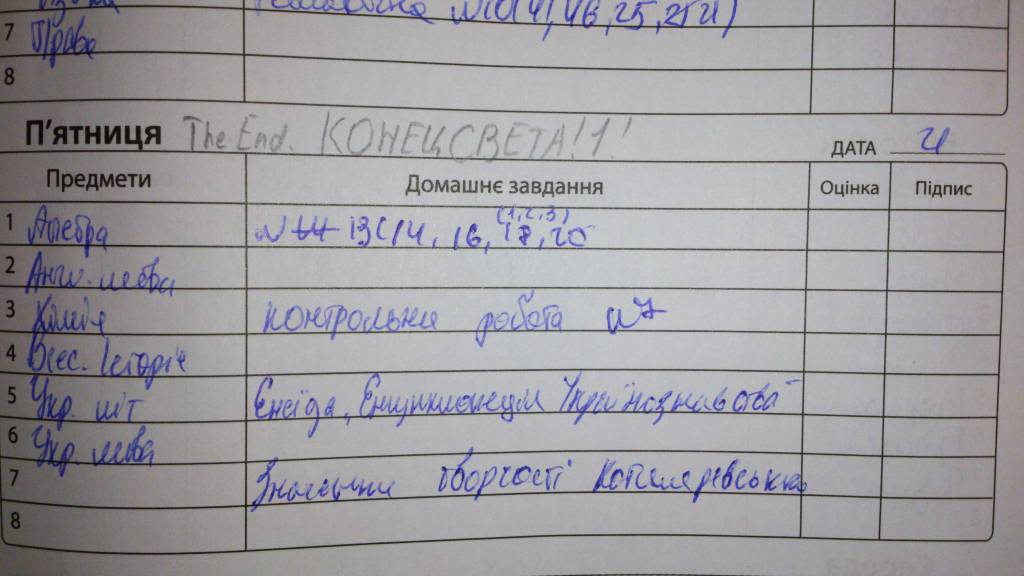 №10(4), 46, 25, 25И)
7 Право
8
П'ятниця The End. КОНЕЦ СВЕТА!1! ДАТА 21
Предмети Домашнє завдання Оцінка Підпис
1 Алгебра № 13(14, 16, 17, 20 (1,2,3)
2 Англ. мова
3 Хімія контрольна робота №7
4 Всес. Історія
5 Укр. літ Енеїда, Українознавства
6 Укр. мова
7 Значення творчості Котляревського
8